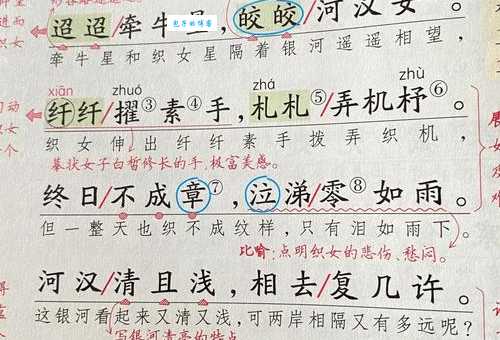 迢迢牵牛星,皎皎/河汉女。
牵牛星和织女星隔着银河遥遥相望,
xiān zhuó zhá zhù
纤纤/擢③素④手,札札⑤/弄机杼⑥。
织女伸出纤纤素手拨弄织机,
摹状女子白皙修长的手,极富美感。
终日/不成章⑦,泣涕/零⑧如雨。
但一整天也织不成纹样,只有泪如雨下。
比喻:点明织女的悲伤、愁闷。
河汉/清且浅,相去/复几许。
这银河看起来又清又浅,可两岸相隔又有多远呢?
写银河清亮的特点